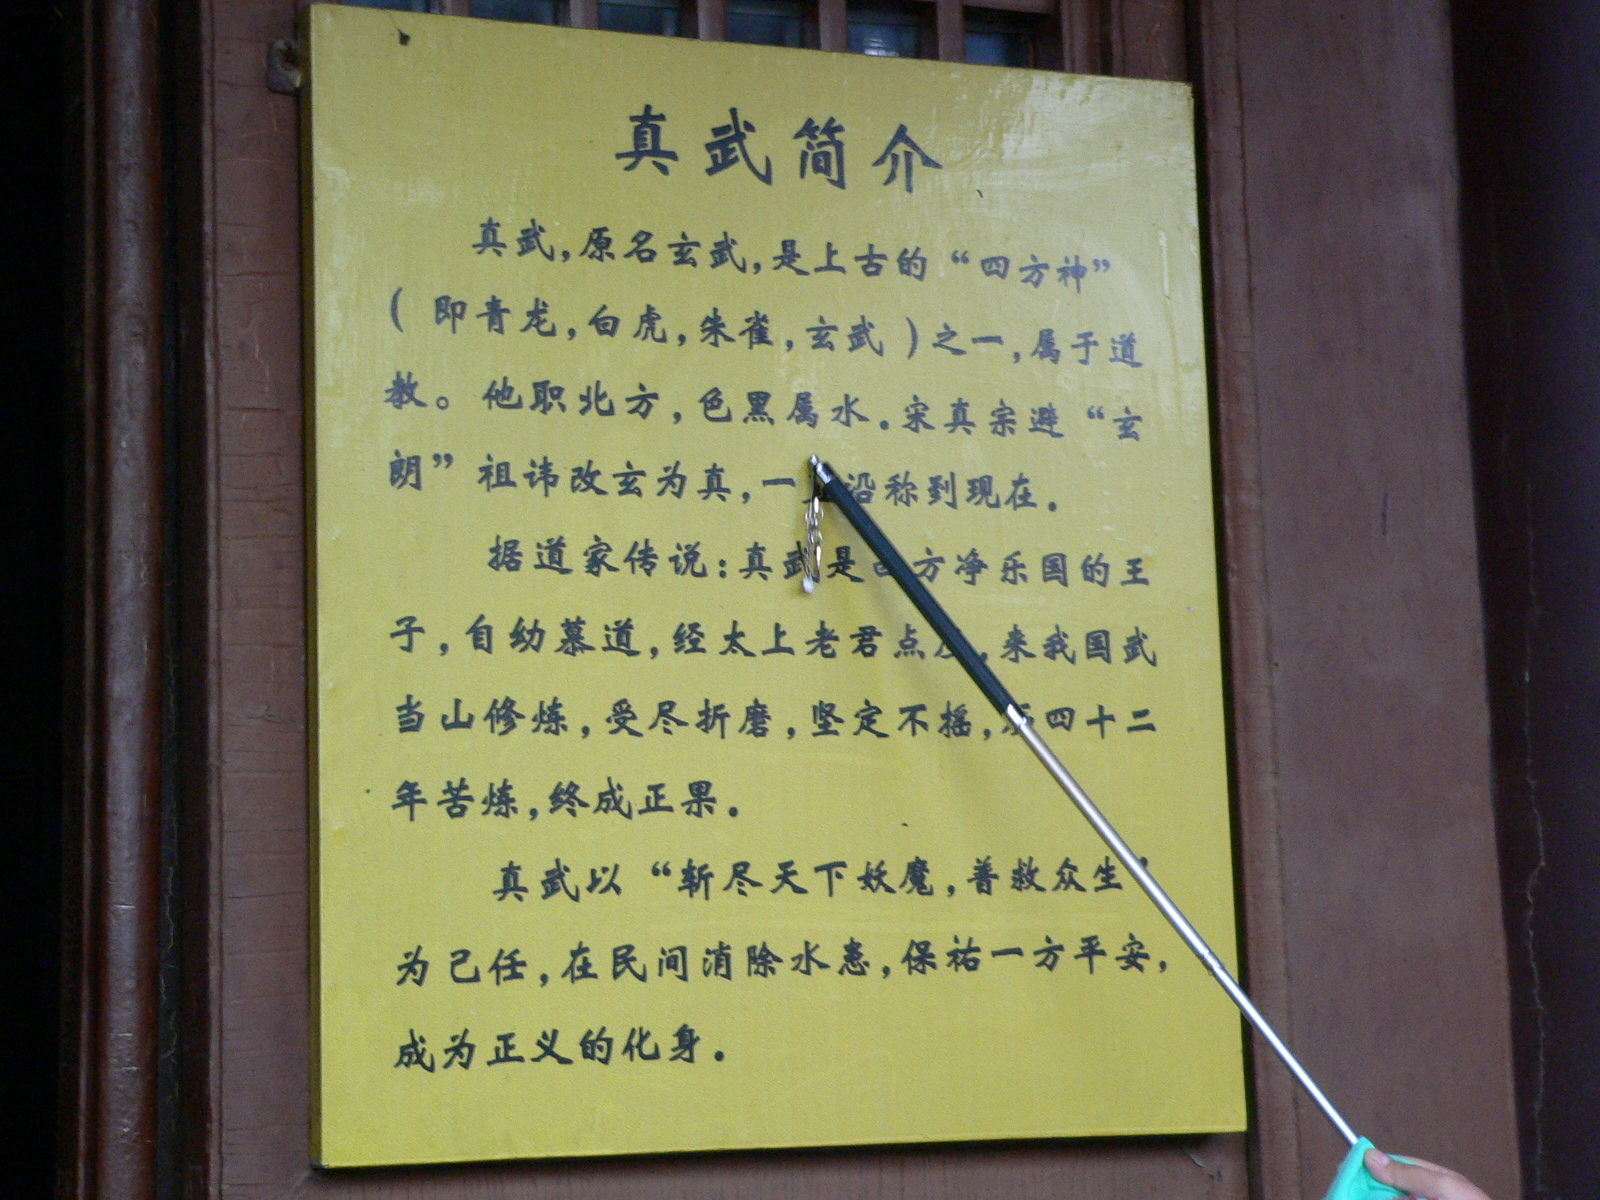 真武简介
真武，原名玄武，是上古的“四方神”
（即青龙，白虎，朱雀，玄武）之一，属于道
教。他职北方，色黑属水。宋真宗避“玄
朗”祖讳改玄为真，一沿称到现在。
据道家传说：真武是方净乐国的王
子，自幼慕道，经太上老君点，来我国武
当山修炼，受尽折磨，坚定不摇，四十二
年苦炼，终成正果。
真武以“斩尽天下妖魔，普救众生”
为己任，在民间消除水患，保祐一方平安，
成为正义的化身。